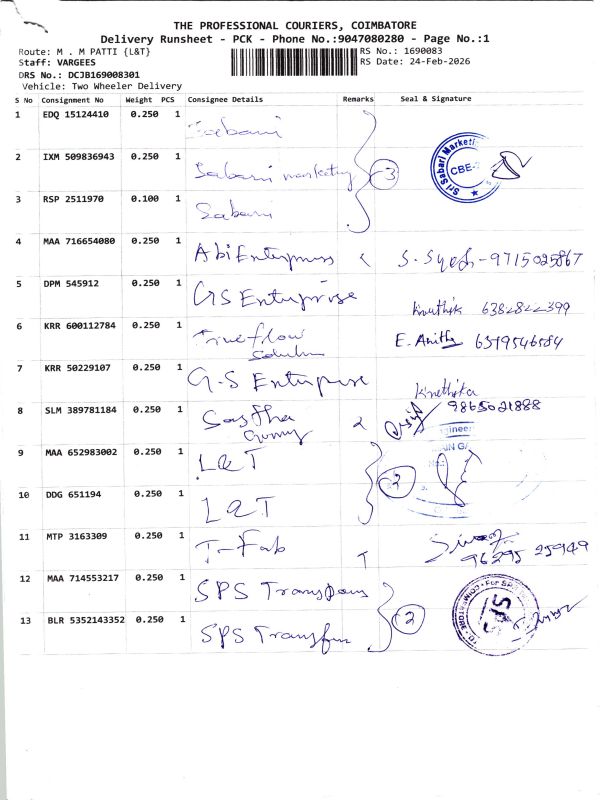 THE PROFESSIONAL COURIERS, COIMBATORE
Delivery Runsheet - PCK - Phone No.:9047080280 - Page No.:1
Route: M . M PATTI {L&T} RS No.: 1690083
Staff: VARGEES RS Date: 24-Feb-2026
DRS No.: DCJB169008301
Vehicle: Two Wheeler Delivery
S No Consignment No Weight PCS Consignee Details Remarks Seal & Signature
1 EDQ 15124410 0.250 1 Sabari
2 IXM 509836943 0.250 1 Sabari marketing 3 Sri Sabari Marketi CBE-
3 RSP 2511970 0.100 1 Sabari
4 MAA 716654080 0.250 1 Abi Enterprises S. Syed - 9715025867
5 DPM 545912 0.250 1 GS Enterprise
6382822399
6 KRR 600112784 0.250 1 Trueflow E. Anitha 6379546584
Solution
7 KRR 50229107 0.250 1 G.S Enterprise
Kruthika
8 SLM 389781184 0.250 1 Sastha 9865021888
9 MAA 652983002 0.250 1 L&T
2
10 DDG 651194 0.250 1 L&T
11 MTP 3163309 0.250 1 T-Fab
96295 25949
12 MAA 714553217 0.250 1 SPS Transpons
2 SPS
13 BLR 5352143352 0.250 1 SPS